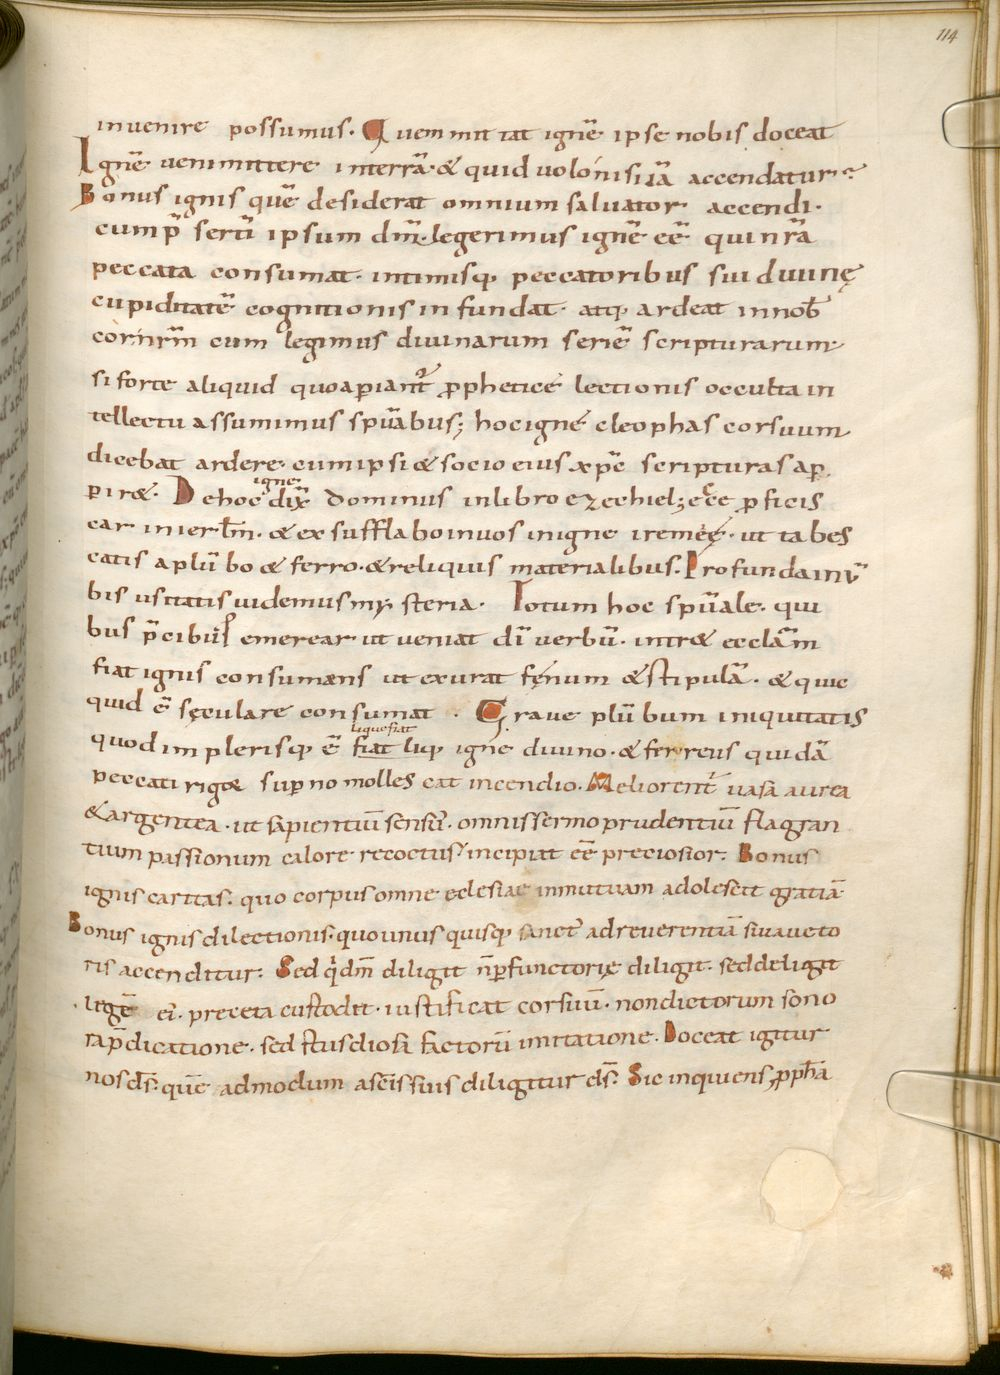 114
invenire possumus. Quem mittat ignē ipse nobis doceat
Ignē veni mittere in terrā. & quid volo nisi iā accendatur?
Bonus ignis quē desiderat omnium salvator accendi.
cum p̄ sertī ipsum dm̄. legerimus ignē eē qui nr̄a
peccata consumat. intimisq; peccatoribus sui divinę
cupiditatē cognitionis infundat. atq; ardeat in nob̄
cor nr̄m cum legimus divinarum seriē scripturarum.
si forte aliquid quo apiant᷑ prophetice lectionis occulta in
tellectu assumimus spūabus; hoc igne cleophas cor suum
dicebat ardere. cum ipsi & socio eius xp̄c scripturas ap
pir&. De hoc igne dix̄ dominus in libro ezechiel; ecce proficis
car in ierl̄m. & exsufflabo in vos in igne iremeę. ut tabes
catis a plū bo & ferro. & reliquis materialibus. Profunda in v̄
bis usitatis videmus mysteria. Totum hoc spūale. qui
bus p̄cibus emerear ut veniat dī verbū. intr& ecclām
fiat ignis consumens ut exurat fęnum & stipulā. & quic
quid ē sęculare consumat. Grave plū bum iniquitatis
liquefiat
quod im plerisq; ē fiat liq; igne divino. & ferreus quidā
peccati rigor sup no molles cat incendio. Meliorent᷑ vasa aurea
& argentea. ut sapientiū sensū. omnis sermo prudentiū flaggan
tium passionum calore recoctus incipiat eē preciosior. Bonus
ignis caritas. quo corpus omne eclesiae in mutuam adolescit gratiā
Bonus ignis dilectionis. quo unus quisq; sanct᷑ ad reverentiā sui aucto
ris accenditur. Sed q dm̄ diligit n perfunctorię diligit. sed deligit
legē ei. preceta custodit. iustificat cor suū. non dictorum sono
ra p̄dicatione. sed stusdiosa factorū imitatione. Doceat igitur
nos dS̄. quē admodum a sc̄is suis diligitur dS̄. Sic inquiens ppha